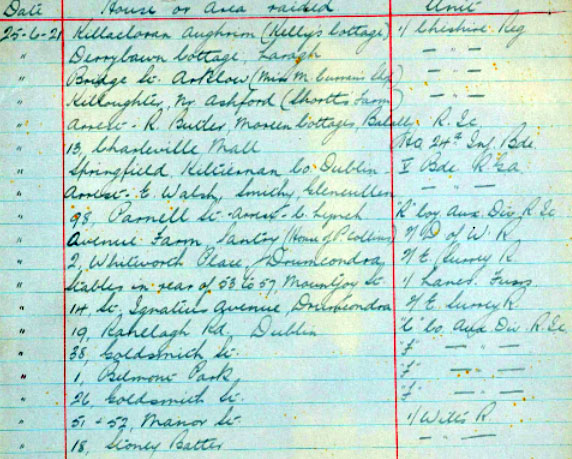 Date House or Area raided Unit
25-6-21 Killacloran Aughrim (Kelly's Cottage) 1/ Cheshire Reg
" Derrybawn Cottage, Laragh " — " —
" Bridge St. Arklow (Miss M. Curran's) " — " —
" Killoughter, Nr. Ashford (Shortts Farm) " — " —
" Arrest - R. Butler, Mareen Cottages, Balally R. Sc
" 13, Charleville Mall HQ 24th Inf. Bde.
" Springfield, Kilternan Co. Dublin - V Bde R.G.A.
" Arrest - E. Walsh, Smithy, Glencullen " — " —
" 98 Parnell St - Arrest - C. Lynch "R" Coy Aux. Div. R. Ic
" Avenue Farm, Santry (House of P. Collins) 2/ D of W. R
" 2, Whitworth Place, Drumcondra 2/ E. Surrey R
" Stables in rear of 53 to 57 Mountjoy St. 1/ Lancs. Fuss.
" 14 St. Ignatius Avenue, Drumcondra 2/ E. Surrey R
" 19, Ranelagh Rd, Dublin "C" Co. Aux. Div. R. Ic
" 38, Goldsmith St. "F" — " —
" 1, Belmont Park "F" — " —
" 26, Goldsmith St. "F" — " —
" 51 - 52, Manor St. 1/ Wilts R
" 18, Stoney Batter " — " —